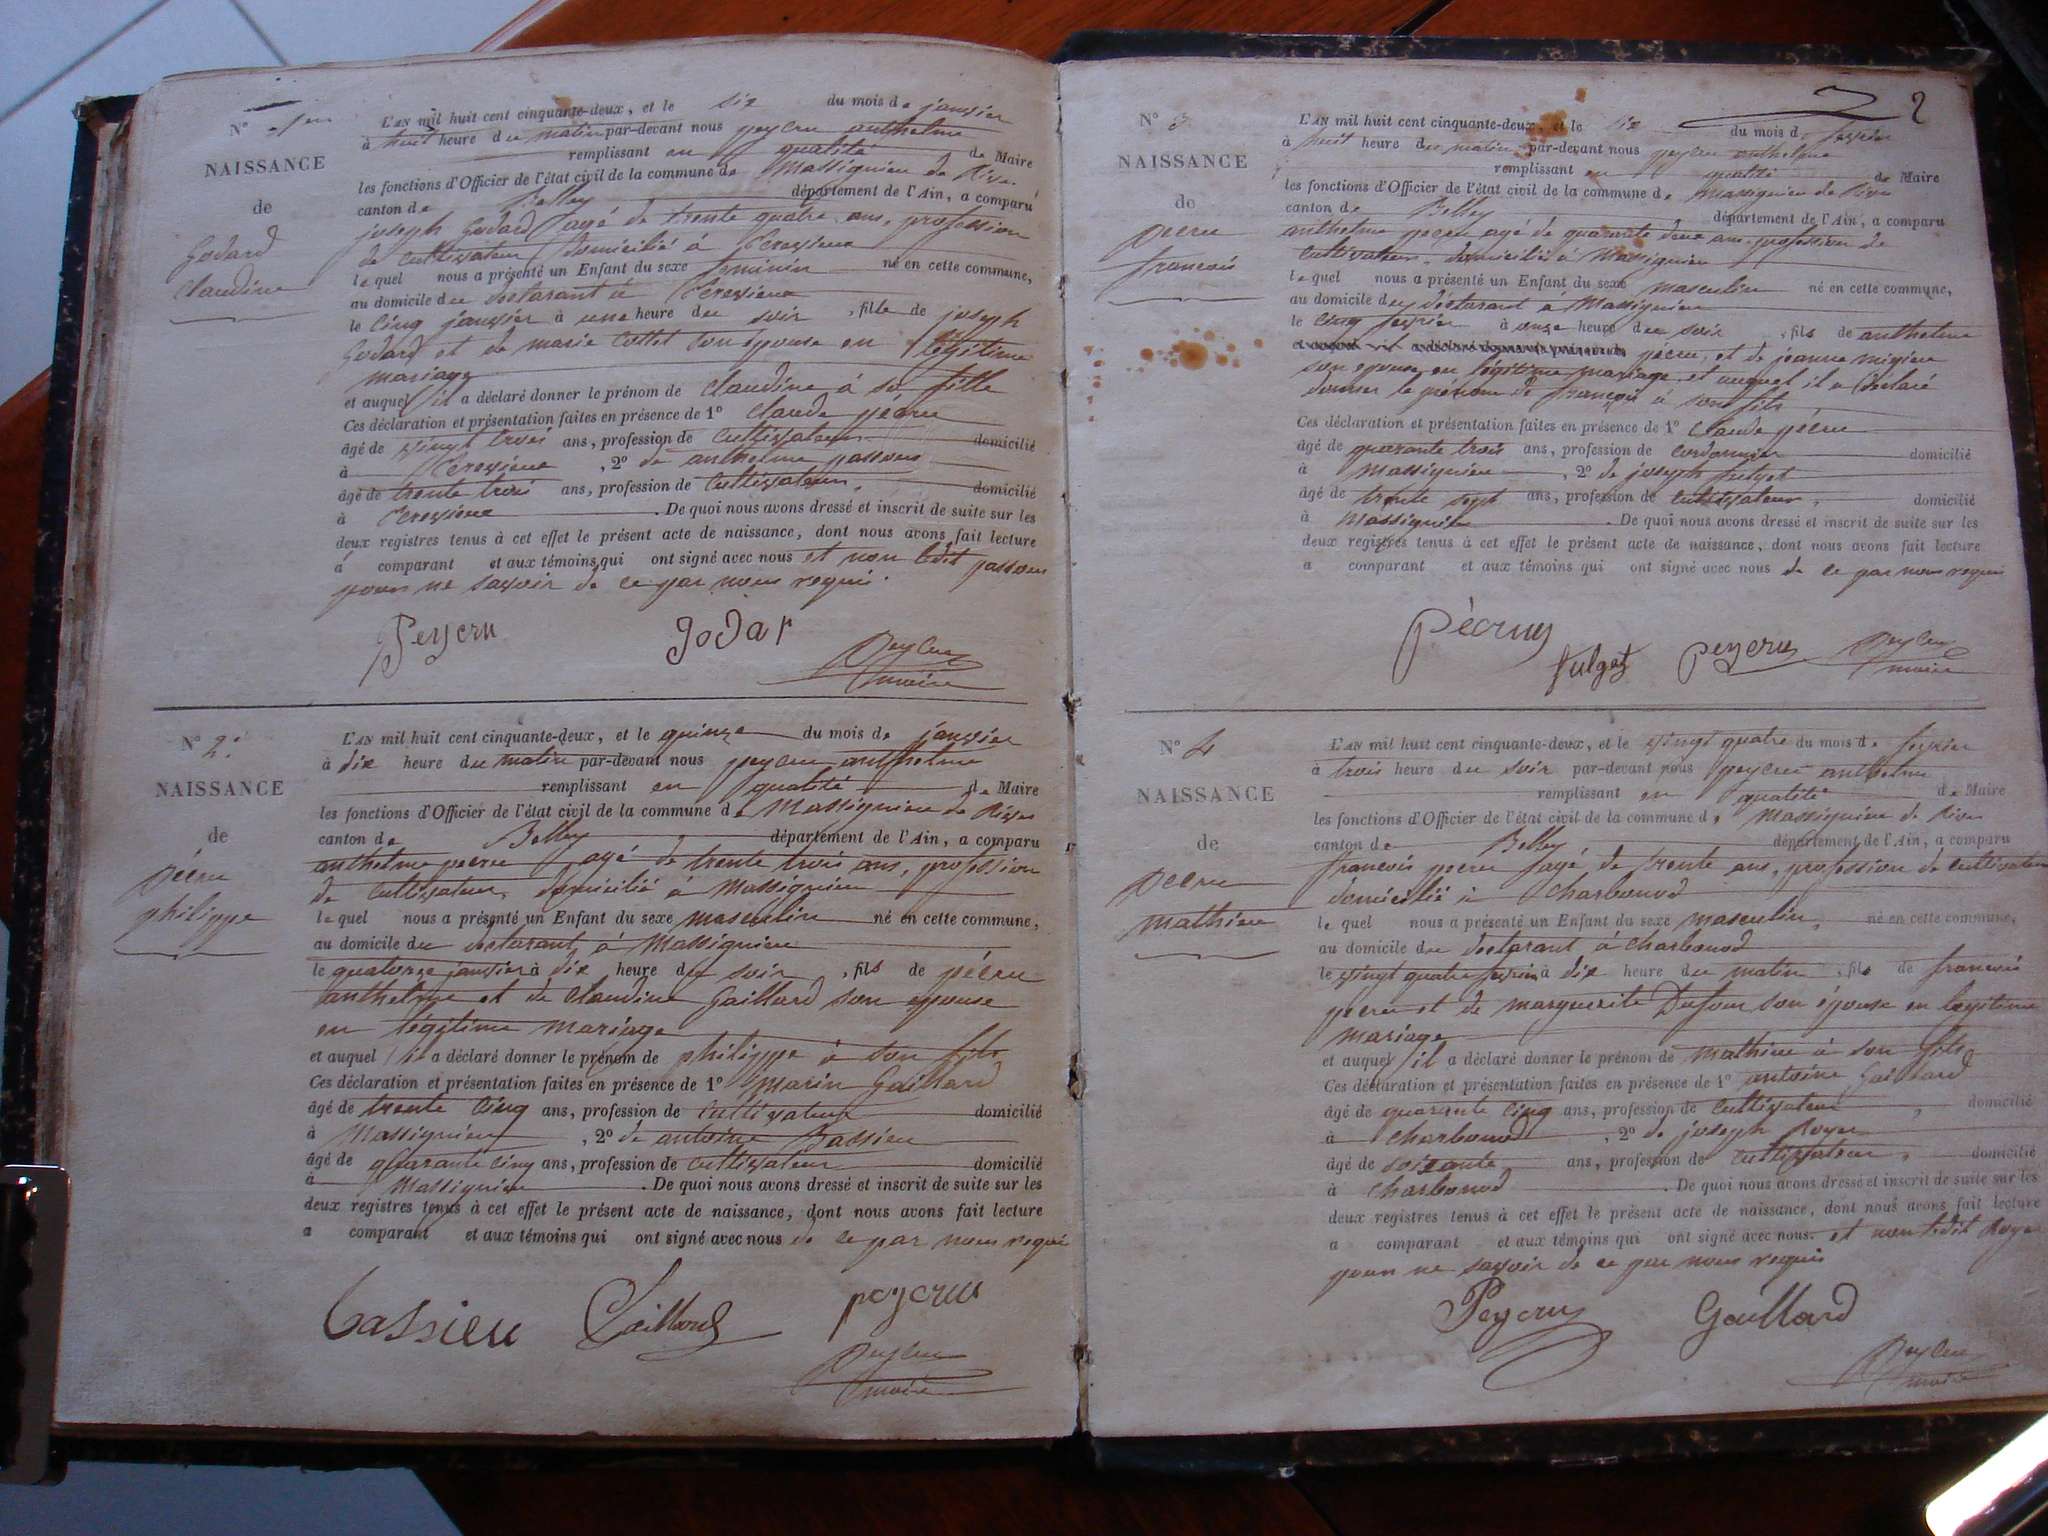 N° 1er
NAISSANCE
de
Godard
Claudine
L'AN mil huit cent cinquante-deux, et le six du mois de janvier
à huit heure du matin par-devant nous peycru anthelme
remplissant en qualité de Maire
les fonctions d'Officier de l'état civil de la commune de Massignieu de Rives
canton de Belley département de l'Ain, a comparu
joseph Godard agé de trente quatre ans, profession
de cultivateur domicilié à
le quel nous a présenté un Enfant du sexe feminin né en cette commune,
au domicile du declarant à
le cinq janvier à une heure du soir, fille de joseph
Godard et de marie Collet son épouse en légitime
mariage
et auquel il a déclaré donner le prénom de claudine à sa fille
Ces déclaration et présentation faites en présence de 1° claude pécru
âgé de vingt trois ans, profession de cultivateur domicilié
à , 2° de anthelme
âgé de trente trois ans, profession de cultivateur, domicilié
à . De quoi nous avons dressé et inscrit de suite sur les
deux registres tenus à cet effet le présent acte de naissance, dont nous avons fait lecture
a comparant et aux témoins qui ont signé avec nous et non ledit
pour ne savoir de ce par nous requi.
Peycru Godar
Peycru
maire
N° 2.
NAISSANCE
de
Pécru
philippe
L'AN mil huit cent cinquante-deux, et le quinze du mois de janvier
à dix heure du matin par-devant nous peycru anthelme
remplissant en qualité de Maire
les fonctions d'Officier de l'état civil de la commune de Massignieu de Rives
canton de Belley département de l'Ain, a comparu
anthelme pecru agé de trente trois ans, profession
de cultivateur, domicilié a Massignieu
le quel nous a présenté un Enfant du sexe masculin né en cette commune,
au domicile du declarant à Massignieu
le quatorze janvier à dix heure du soir, fils de pécru
anthelme et de claudine Gaillard son epouse
en légitime mariage
et auquel il a déclaré donner le prénom de philippe à son fils
Ces déclaration et présentation faites en présence de 1° marin Gaillard
âgé de trente cinq ans, profession de cultivateur domicilié
à Massignieu, 2° de antoine Bassieu
âgé de quarante cinq ans, profession de cultivateur domicilié
à Massignieu . De quoi nous avons dressé et inscrit de suite sur les
deux registres tenus à cet effet le présent acte de naissance, dont nous avons fait lecture
a comparant et aux témoins qui ont signé avec nous de ce par nous requi
Bassieu Gaillard peycru
Peycru
maire
2
N° 3
NAISSANCE
de
Pecru
francois
L'AN mil huit cent cinquante-deux, et le six du mois de fevrier
à huit heure du matin par-devant nous peycru anthelme
remplissant en qualité de Maire
les fonctions d'Officier de l'état civil de la commune de Massignieu de Rives
canton de Belley département de l'Ain, a comparu
anthelme pecru agé de quarante deux ans profession de
cultivateur, domicilié à Massignieu
le quel nous a présenté un Enfant du sexe masculin né en cette commune,
au domicile du declarant à Massignieu
le cinq fevrier à onze heure du soir, fils de anthelme
et auquel il a déclaré donner le prénom de pécru, et de jeanne
son epouse en legitime mariage, et auquel il a declaré
donner le prénom de françois à son fils
Ces déclaration et présentation faites en présence de 1° claude pécru
âgé de quarante trois ans, profession de cordonnier domicilié
à Massignieu, 2° de joseph fulget
âgé de trente sept ans, profession de cultivateur, domicilié
à Massignieu . De quoi nous avons dressé et inscrit de suite sur les
deux registres tenus à cet effet le présent acte de naissance, dont nous avons fait lecture
a comparant et aux témoins qui ont signé avec nous de ce par nous requis
Pécruy
fulget Peycru Peycru
maire
N° 4
NAISSANCE
de
Pecru
mathieu
L'AN mil huit cent cinquante-deux, et le vingt quatre du mois de fevrier
à trois heure du soir par-devant nous peycru anthelme
remplissant en qualité de Maire
les fonctions d'Officier de l'état civil de la commune de Massignieu de Rives
canton de Belley département de l'Ain, a comparu
francois pecru agé de trente ans, profession de cultivateur
domicilié à charbonod
le quel nous a présenté un Enfant du sexe masculin, né en cette commune,
au domicile du declarant à charbonod
le vingt quatre fevrier à dix heure du matin, fils de francois
pecru et de marguerite Dufour son épouse en legitime
mariage
et auquel il a déclaré donner le prénom de mathieu à son fils
Ces déclaration et présentation faites en présence de 1° antoine Gaillard
âgé de quarante cinq ans, profession de cultivateur, domicilié
à charbonod, 2° de joseph Royer
âgé de soixante ans, profession de cultivateur, domicilié
à charbonod . De quoi nous avons dressé et inscrit de suite sur les
deux registres tenus à cet effet le présent acte de naissance, dont nous avons fait lecture
a comparant et aux témoins qui ont signé avec nous. et non ledit Royer
pour ne savoir de ce par nous requis
Peycru Gaillard
Peycru
maire